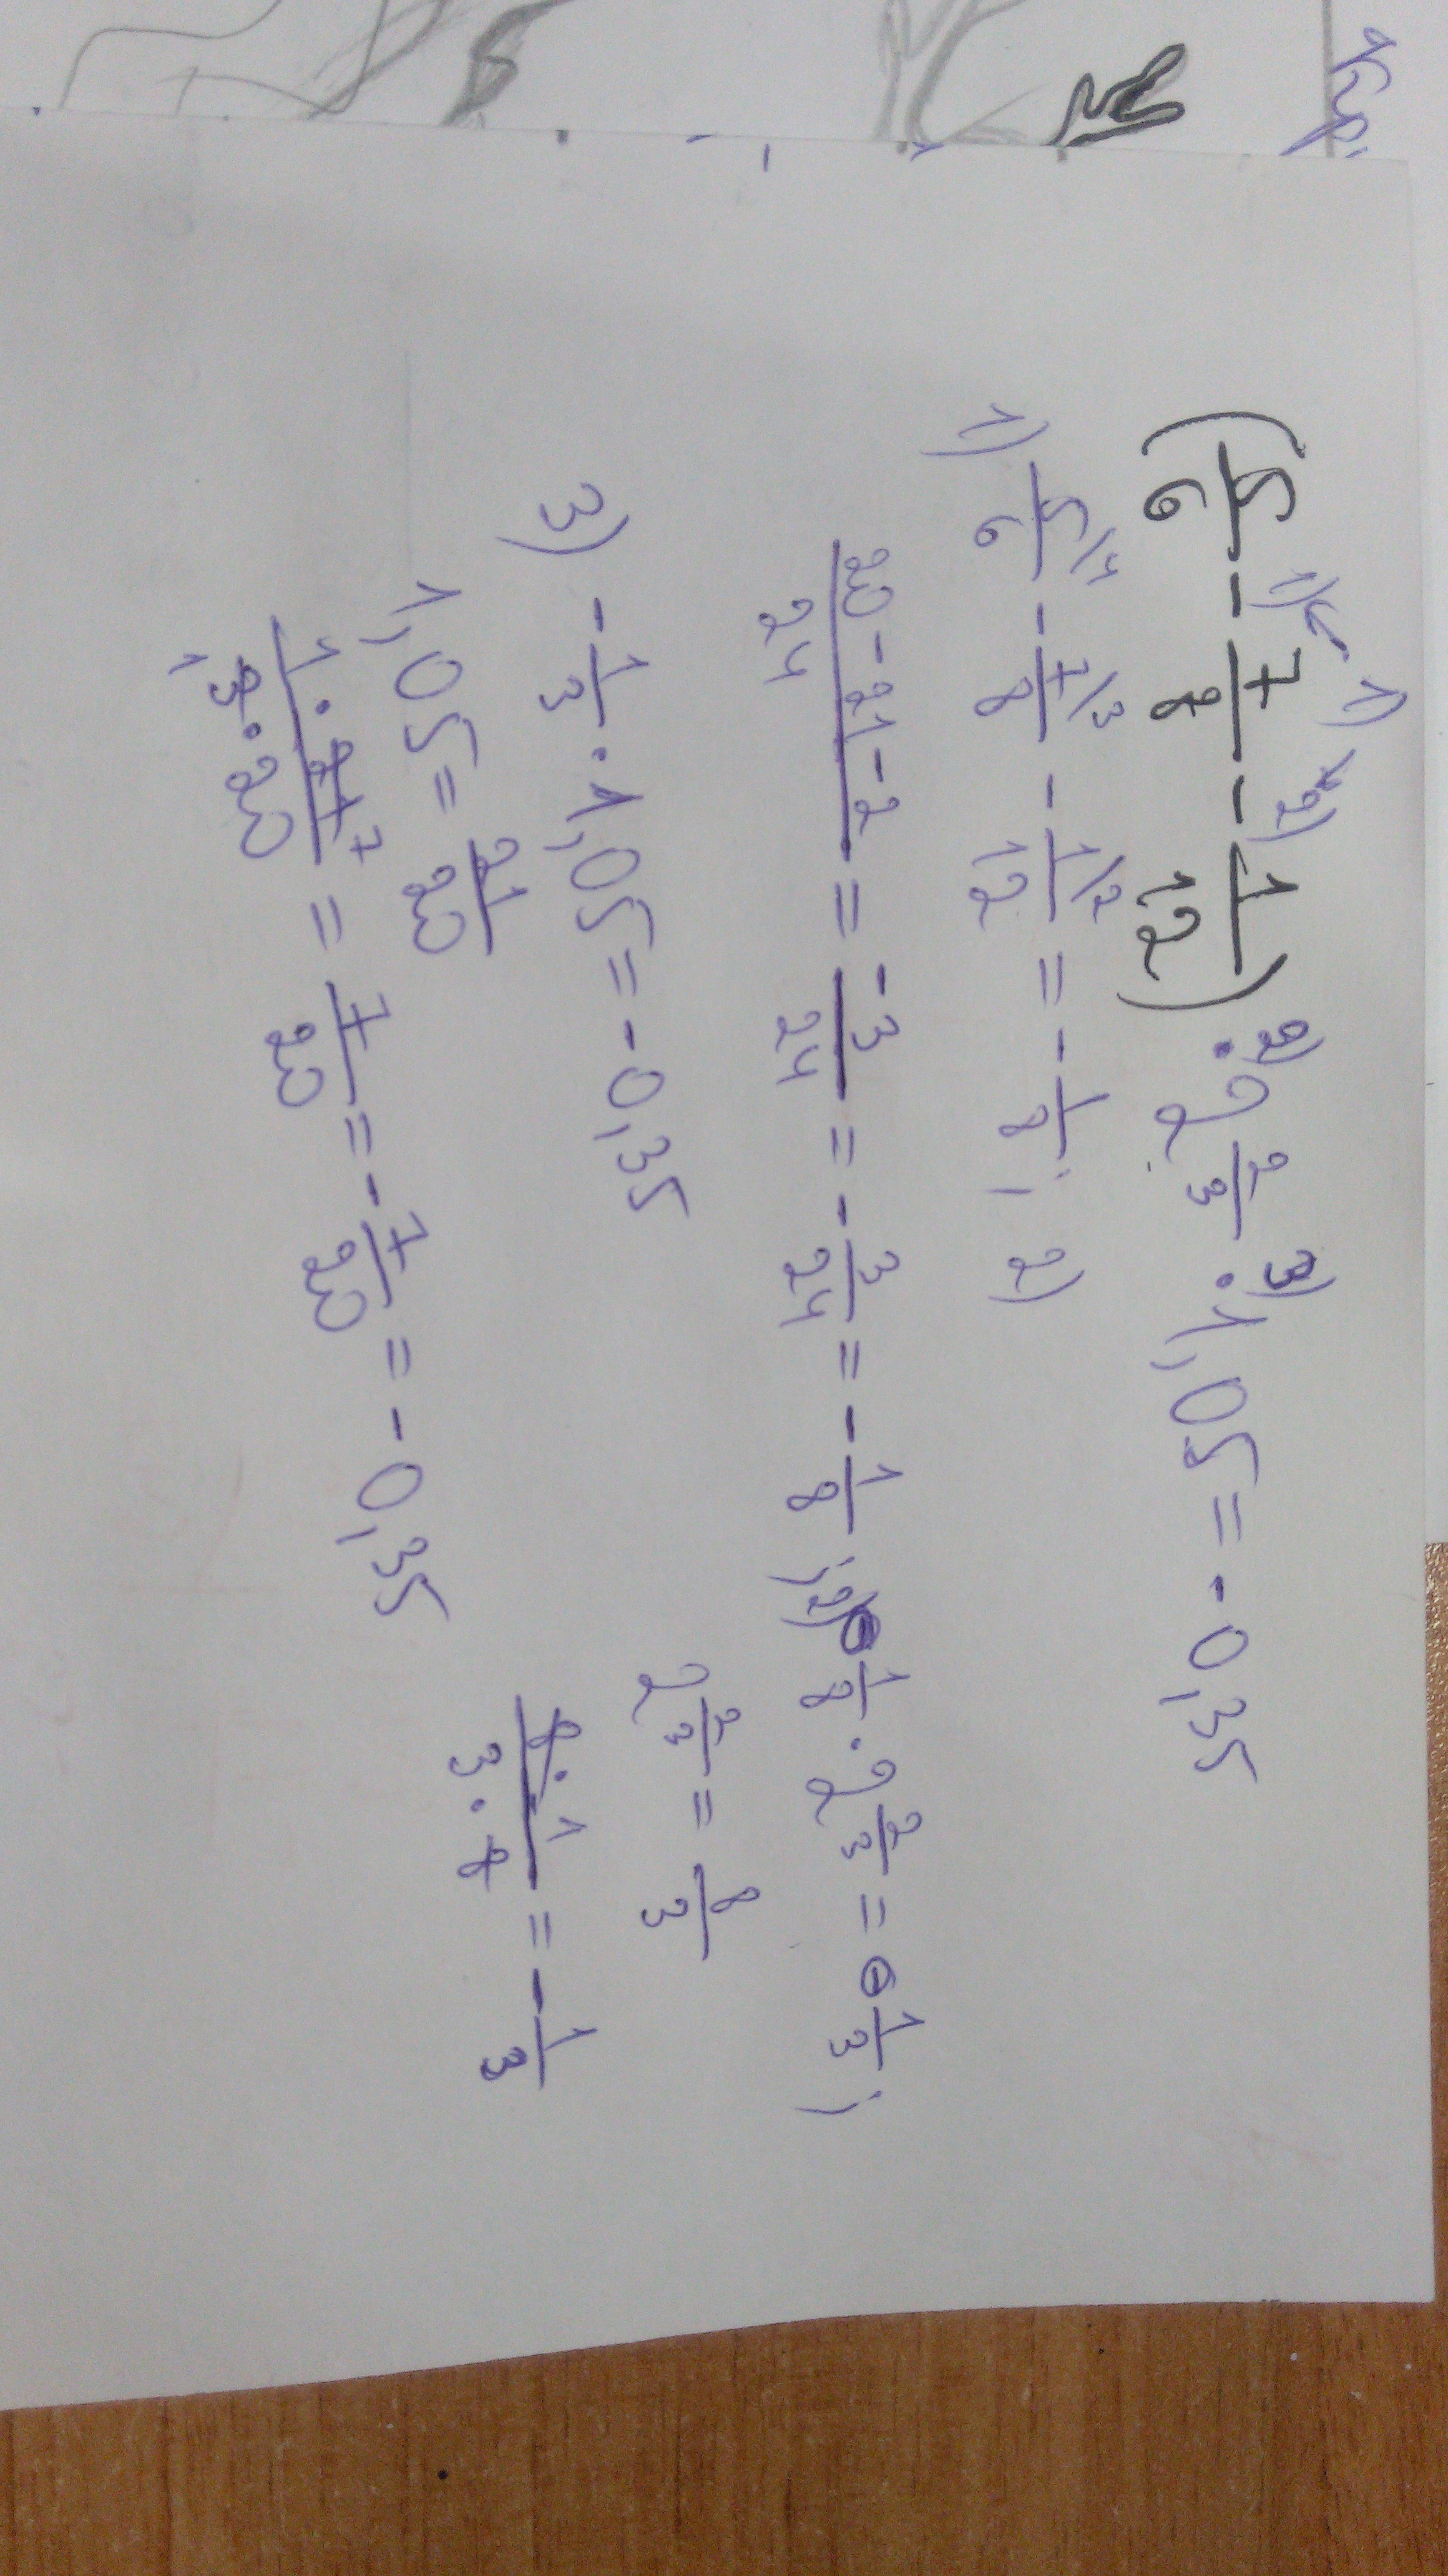 (5/6 - 7/8 - 1/12) · 2 2/3 · 1,05 = -0,35
1) 5/6 - 7/8 - 1/12 = -1/8; 2)
20-21-2/24 = -3/24 = -3/24 = -1/8; 2) -1/8 · 2 2/3 = -1/3;
2 2/3 = 8/3
3) -1/3 · 1,05 = -0,35
8·1/3·8 = -1/3
1,05 = 21/20
1·21/3·20 = 7/20 = -7/20 = -0,35